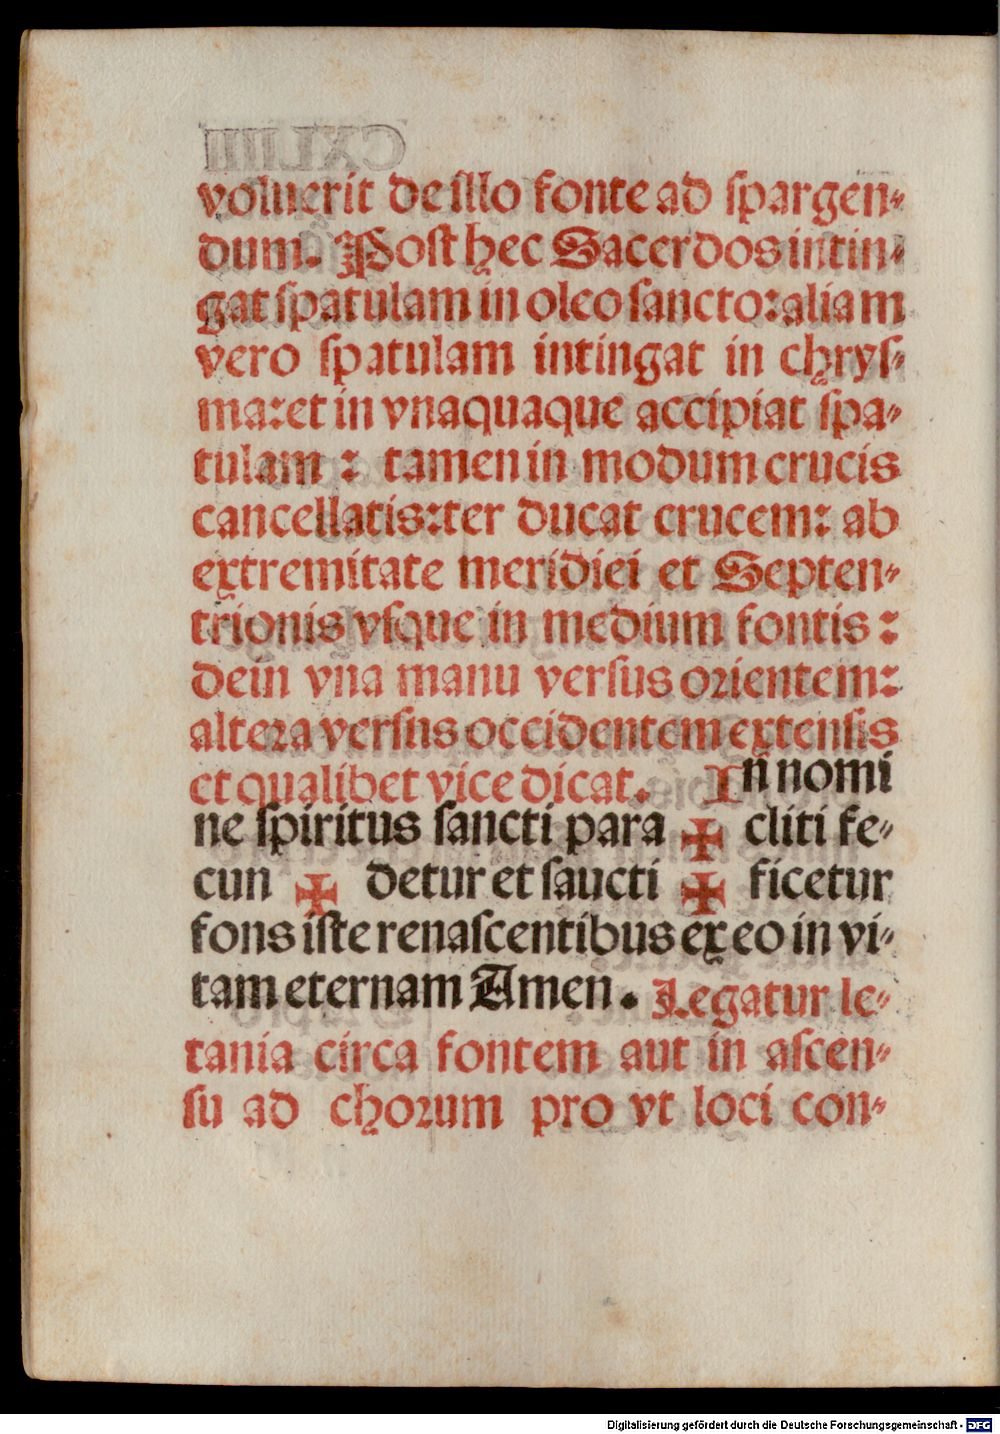 voluerit de illo fonte ad spargen-
dum. Post hec Sacerdos intin-
gat spatulam in oleo sancto: aliam
vero spatulam intingat in chrys-
ma: et in vnaquaque accipiat spa-
tulam : tamen in modum crucis
cancellatis: ter ducat crucem: ab
extremitate meridiei et Septen-
trionis vsque in medium fontis :
dein vna manu versus orientem:
altera versus occidentem extensis
et qualibet vice dicat. In nomi
ne spiritus sancti para ✠ cliti fe-
cun ✠ detur et saucti ✠ ficetur
fons iste renascentibus ex eo in vi-
tam eternam Amen. Legatur le-
tania circa fontem aut in ascen-
su ad chorum pro vt loci con-
Digitalisierung gefördert durch die Deutsche Forschungsgemeinschaft - DFG